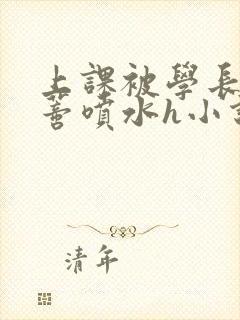 上課被學長
蓄噴水h小
清年